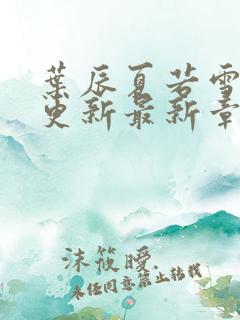 葉辰夏若雪
更新最新章
沫筱曖.
未经同意禁止转载